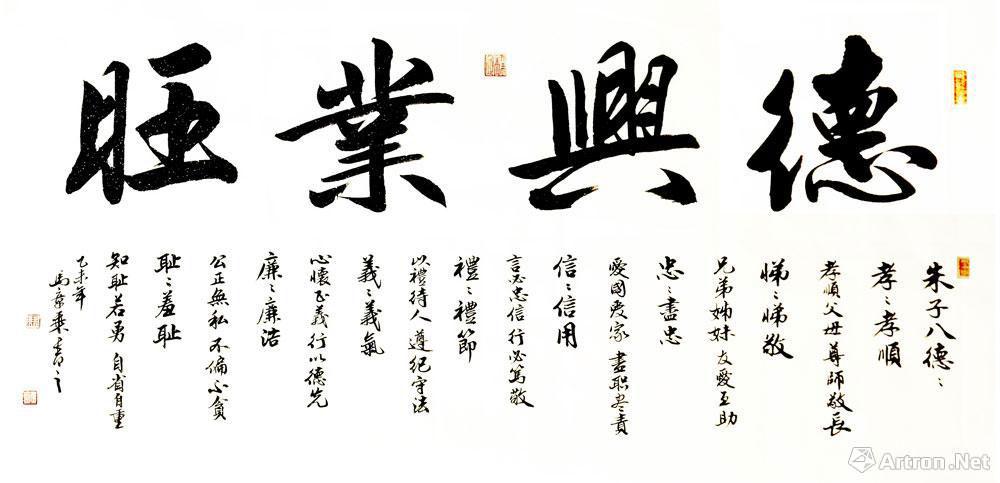 德興業旺
朱子八德:
孝:孝順
孝順父母尊師敬長
悌:悌敬
兄弟姊妹友愛互助
忠:盡忠
愛國愛家盡职尽責
信:信用
言必忠信行必篤敬
禮:禮節
以禮待人遵纪守法
義:義氣
心懷正義行以德先
廉:廉洁
公正無私不偏不貪
耻:羞耻
知耻若勇自省自重
乙未年
Artron.Net